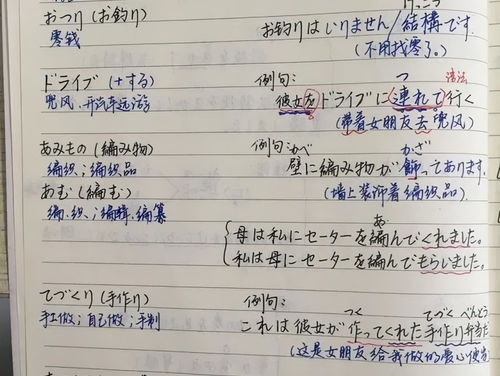 おつり (お釣り)
お釣りはいりません/結構です
けっこう
零钱
(不用找零了。)
ドライブ (+する)
例句:
つ
活法
兜风.开汽车远游
彼女をドライブに連れて行く
(带着女朋友去兜风)
あみもの (編み物)
例句:かべ
かざ
编织;编织品
壁に編み物が飾ってあります。
あむ (編む)
(墙上装饰着编织品)
编.织;编辑.编纂
あ
母は私にセーターを編んでくれました。
私は母にセーターを編んでもらいました。
てづくり (手作り)
例句:
つく
てづく べんとう
手工做;自己做;手制
これは彼女が作ってくれた手作り弁当だ
(这是女朋友给我做的爱心便当